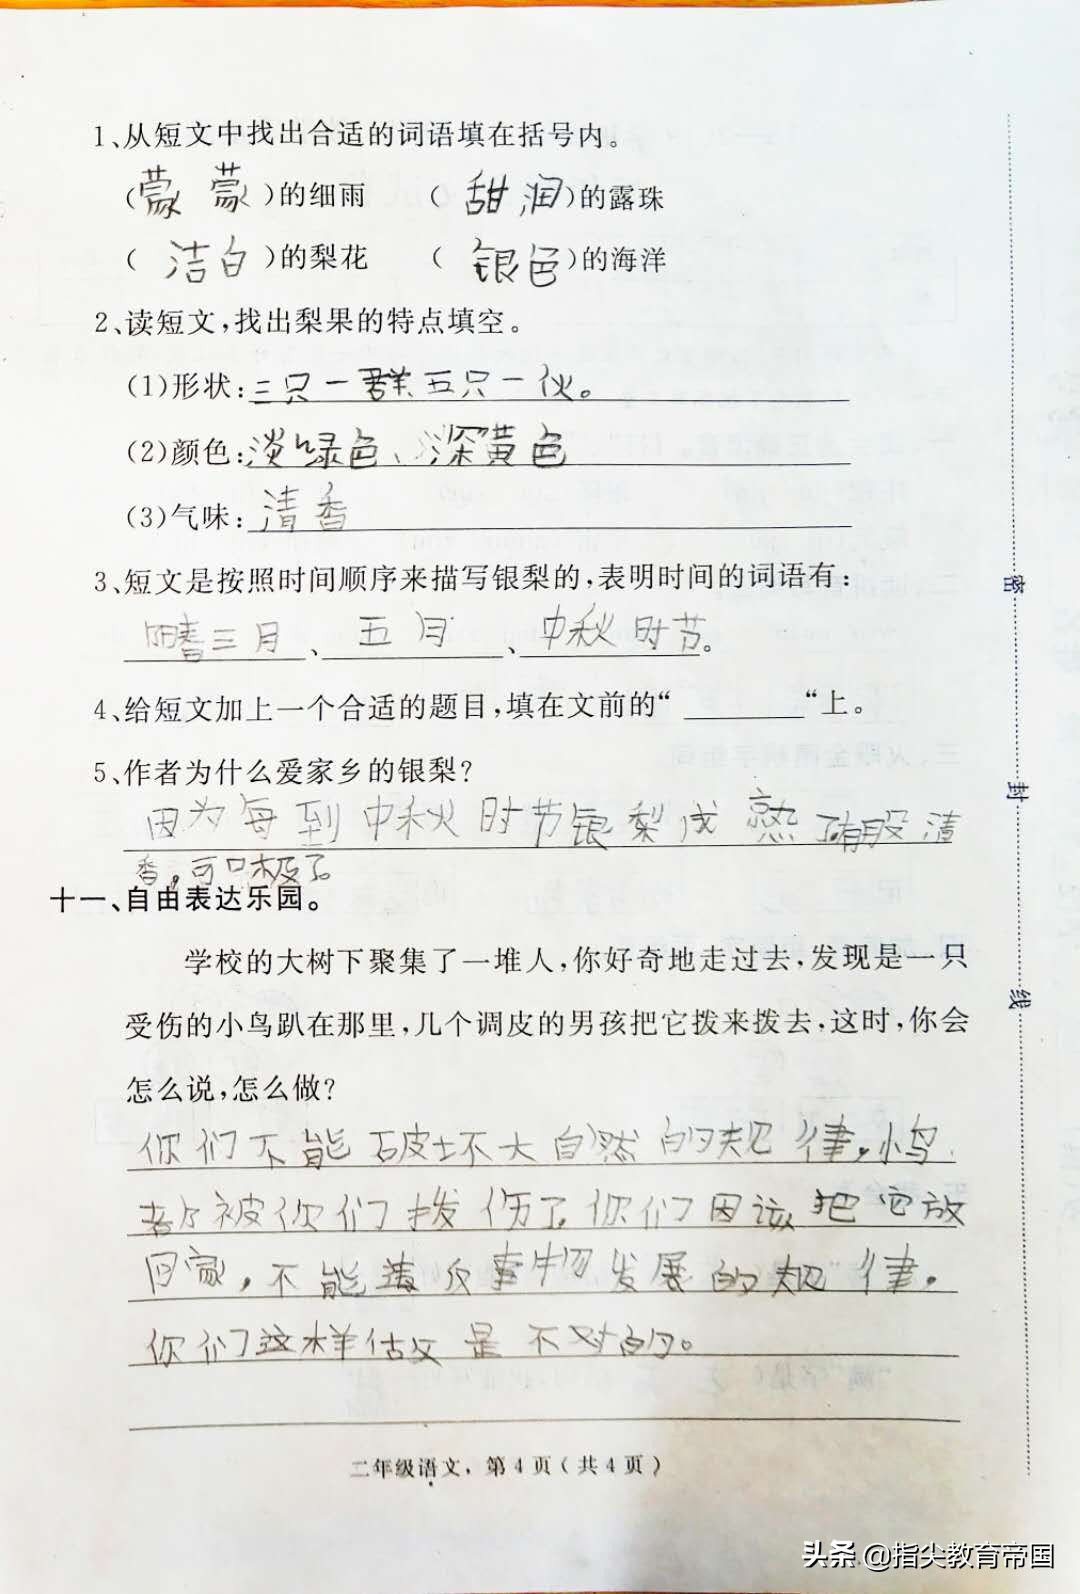 1、从短文中找出合适的词语填在括号内。
(蒙蒙)的细雨 (甜润)的露珠
(洁白)的梨花 (银色)的海洋
2、读短文,找出梨果的特点填空。
(1)形状:三只一群五只一伙。
(2)颜色:淡绿色、深黄色
(3)气味:清香
3、短文是按照时间顺序来描写银梨的,表明时间的词语有:
阳春三月、五月、中秋时节。
4、给短文加上一个合适的题目,填在文前的“________“上。
5、作者为什么爱家乡的银梨?
因为每到中秋时节银梨成熟了有股清
香,可口极了。
十一、自由表达乐园。
学校的大树下聚集了一堆人,你好奇地走过去,发现是一只
受伤的小鸟趴在那里,几个调皮的男孩把它拨来拨去,这时,你会
怎么说,怎么做?
你们不能破坏大自然的规律,小鸟
都被你们拨伤了,你们因该把它放
回家,不能违反事物发展的规律,
你们这样估文是不对的。
二年级语文,第4页(共4页)
密
封
线
头条 @指尖教育帝国